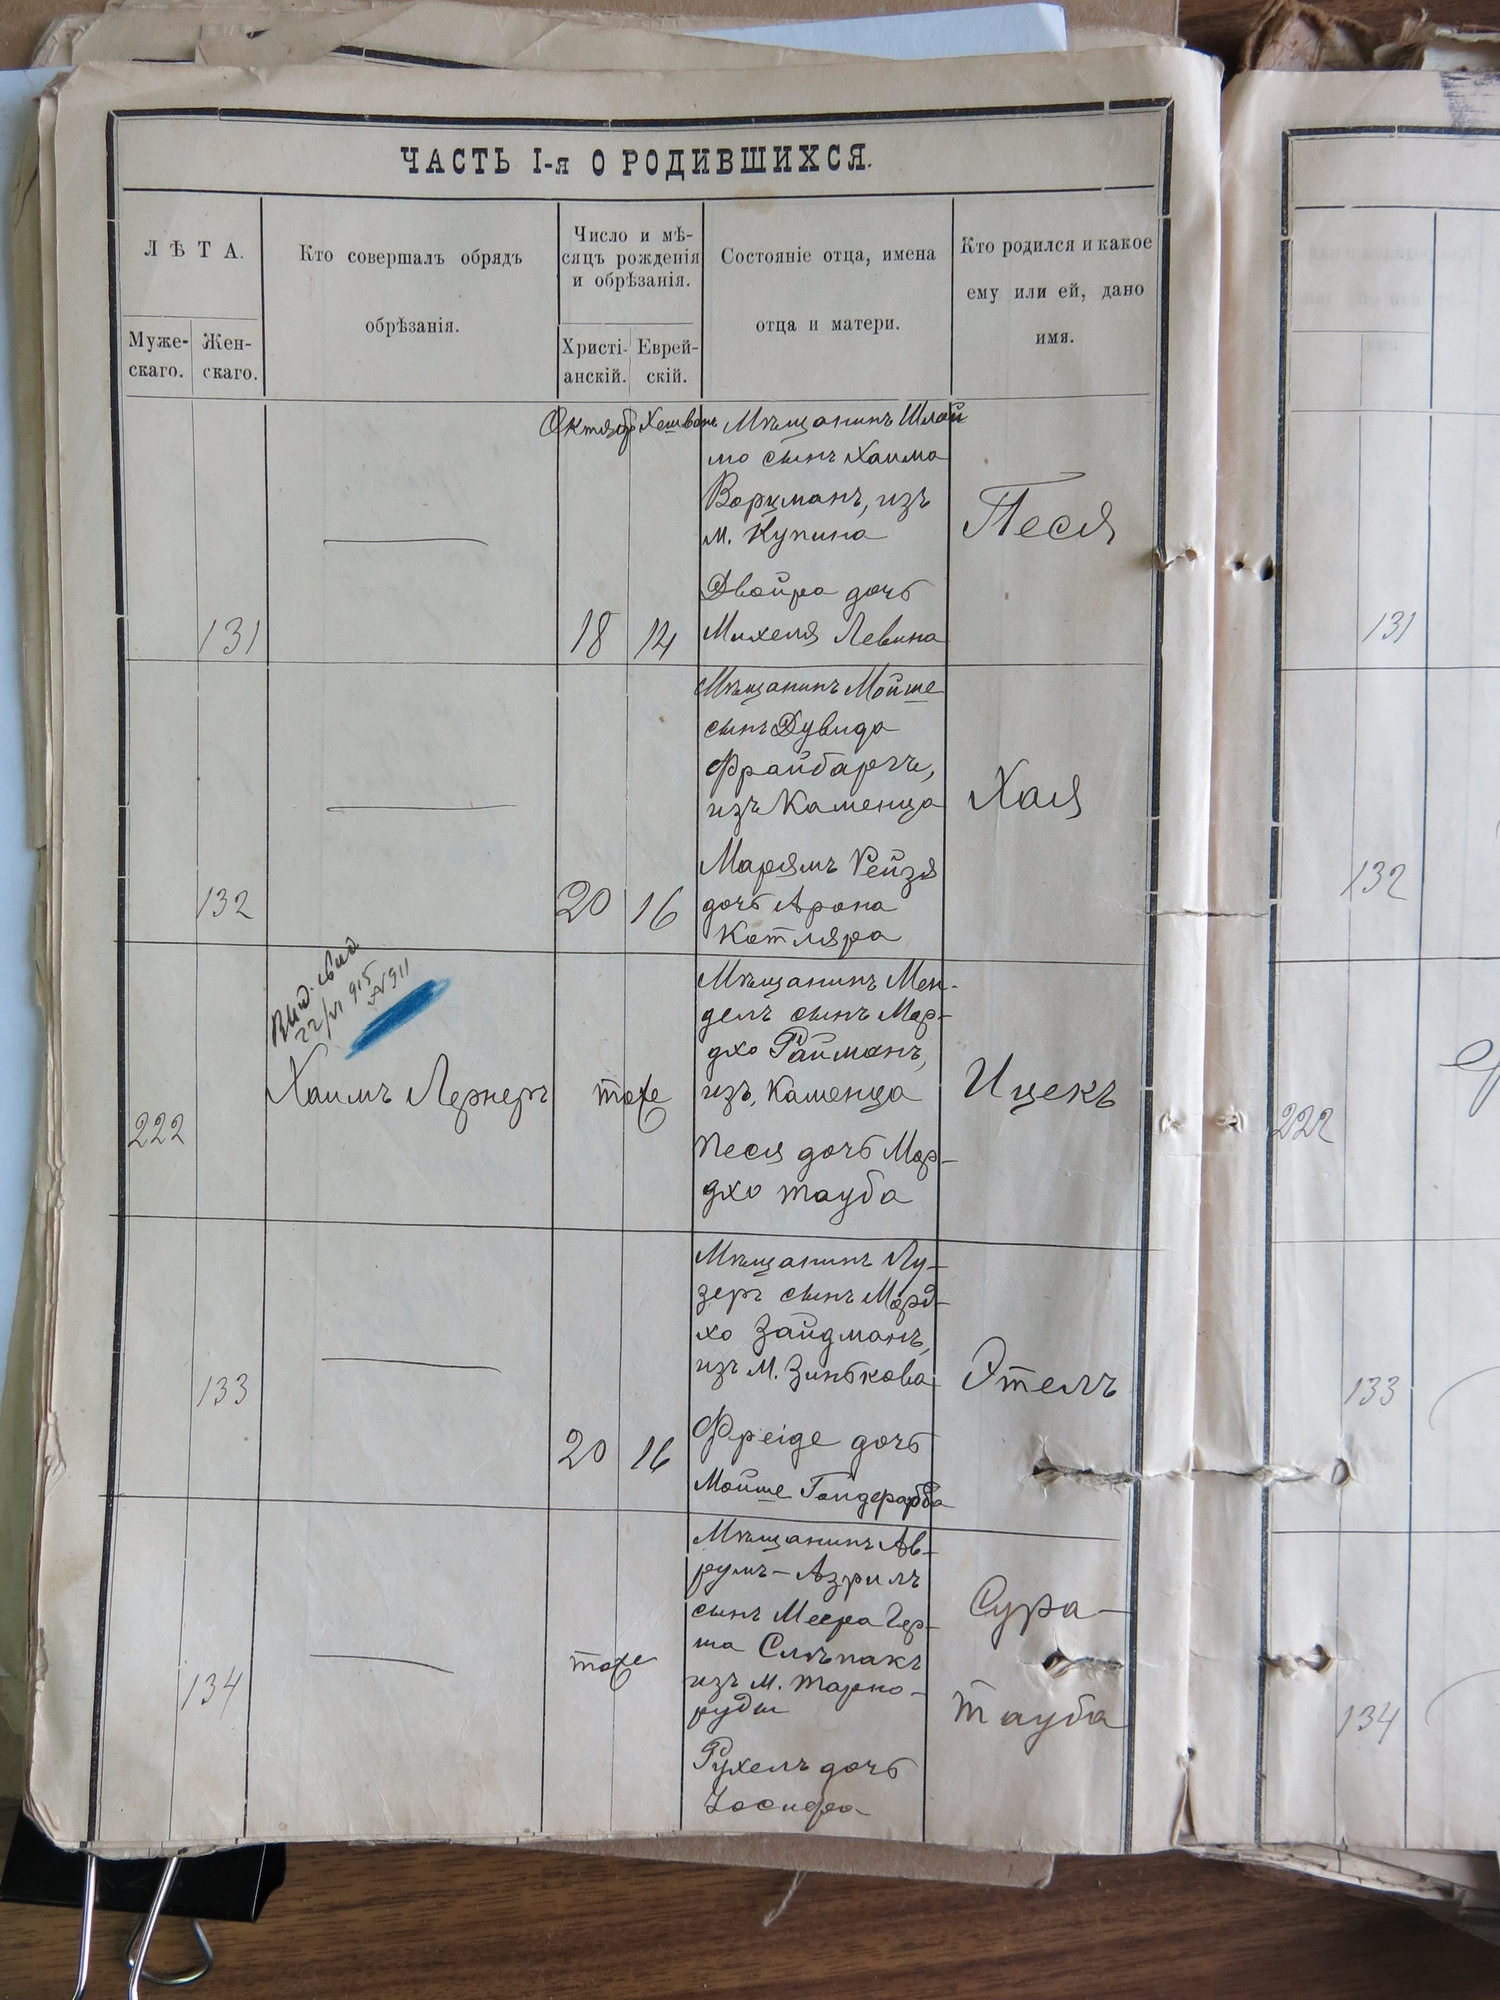 ЧАСТЬ I-я О РОДИВШИХСЯ.
ЛѢТА.
Муже-
скаго.
Жен-
скаго.
Кто совершалъ обрядъ
обрѣзанія.
Число и мѣ-
сяцъ рожденія
и обрѣзанія.
Христі-
анскій.
Еврей-
скій.
Состояніе отца, имена
отца и матери.
Кто родился и какое
ему или ей, дано
имя.
Октябр Хешвань
131
18 14
Мѣщанинъ Шлой
мо сынъ Хаима
Воркманъ, изъ
м. Купина
Двойра дочь
Михеля Левина
Песя
131
132
20 16
Мѣщанинъ Мойше
сынъ Дувида
Фрайбаргъ,
изъ Каменца
Марямъ Рейзя
дочь Арона
Котляра
Хая
132
222
Выд. свид
22/VI 915
№ 911
Хаимъ Лернеръ
тоже
Мѣщанинъ Мен-
дель сынъ Мор-
дхо Райманъ,
изъ, Каменца
Песя дочь Мор-
дхо Тауба
Ицекъ
222
133
20 16
Мѣщанинъ Лу-
зеръ сынъ Морд-
хо Зайдманъ,
изъ м. Зинькова
Фреіде дочь
Мойше
Этель
133
134
тоже
Мѣщанинъ Ав-
румъ-Азриль
сынъ Меера Гер-
ша Слѣпакъ
изъ м. Тарно-
руды
Рухель дочь
Іосифа
Сура-
Тауба
134